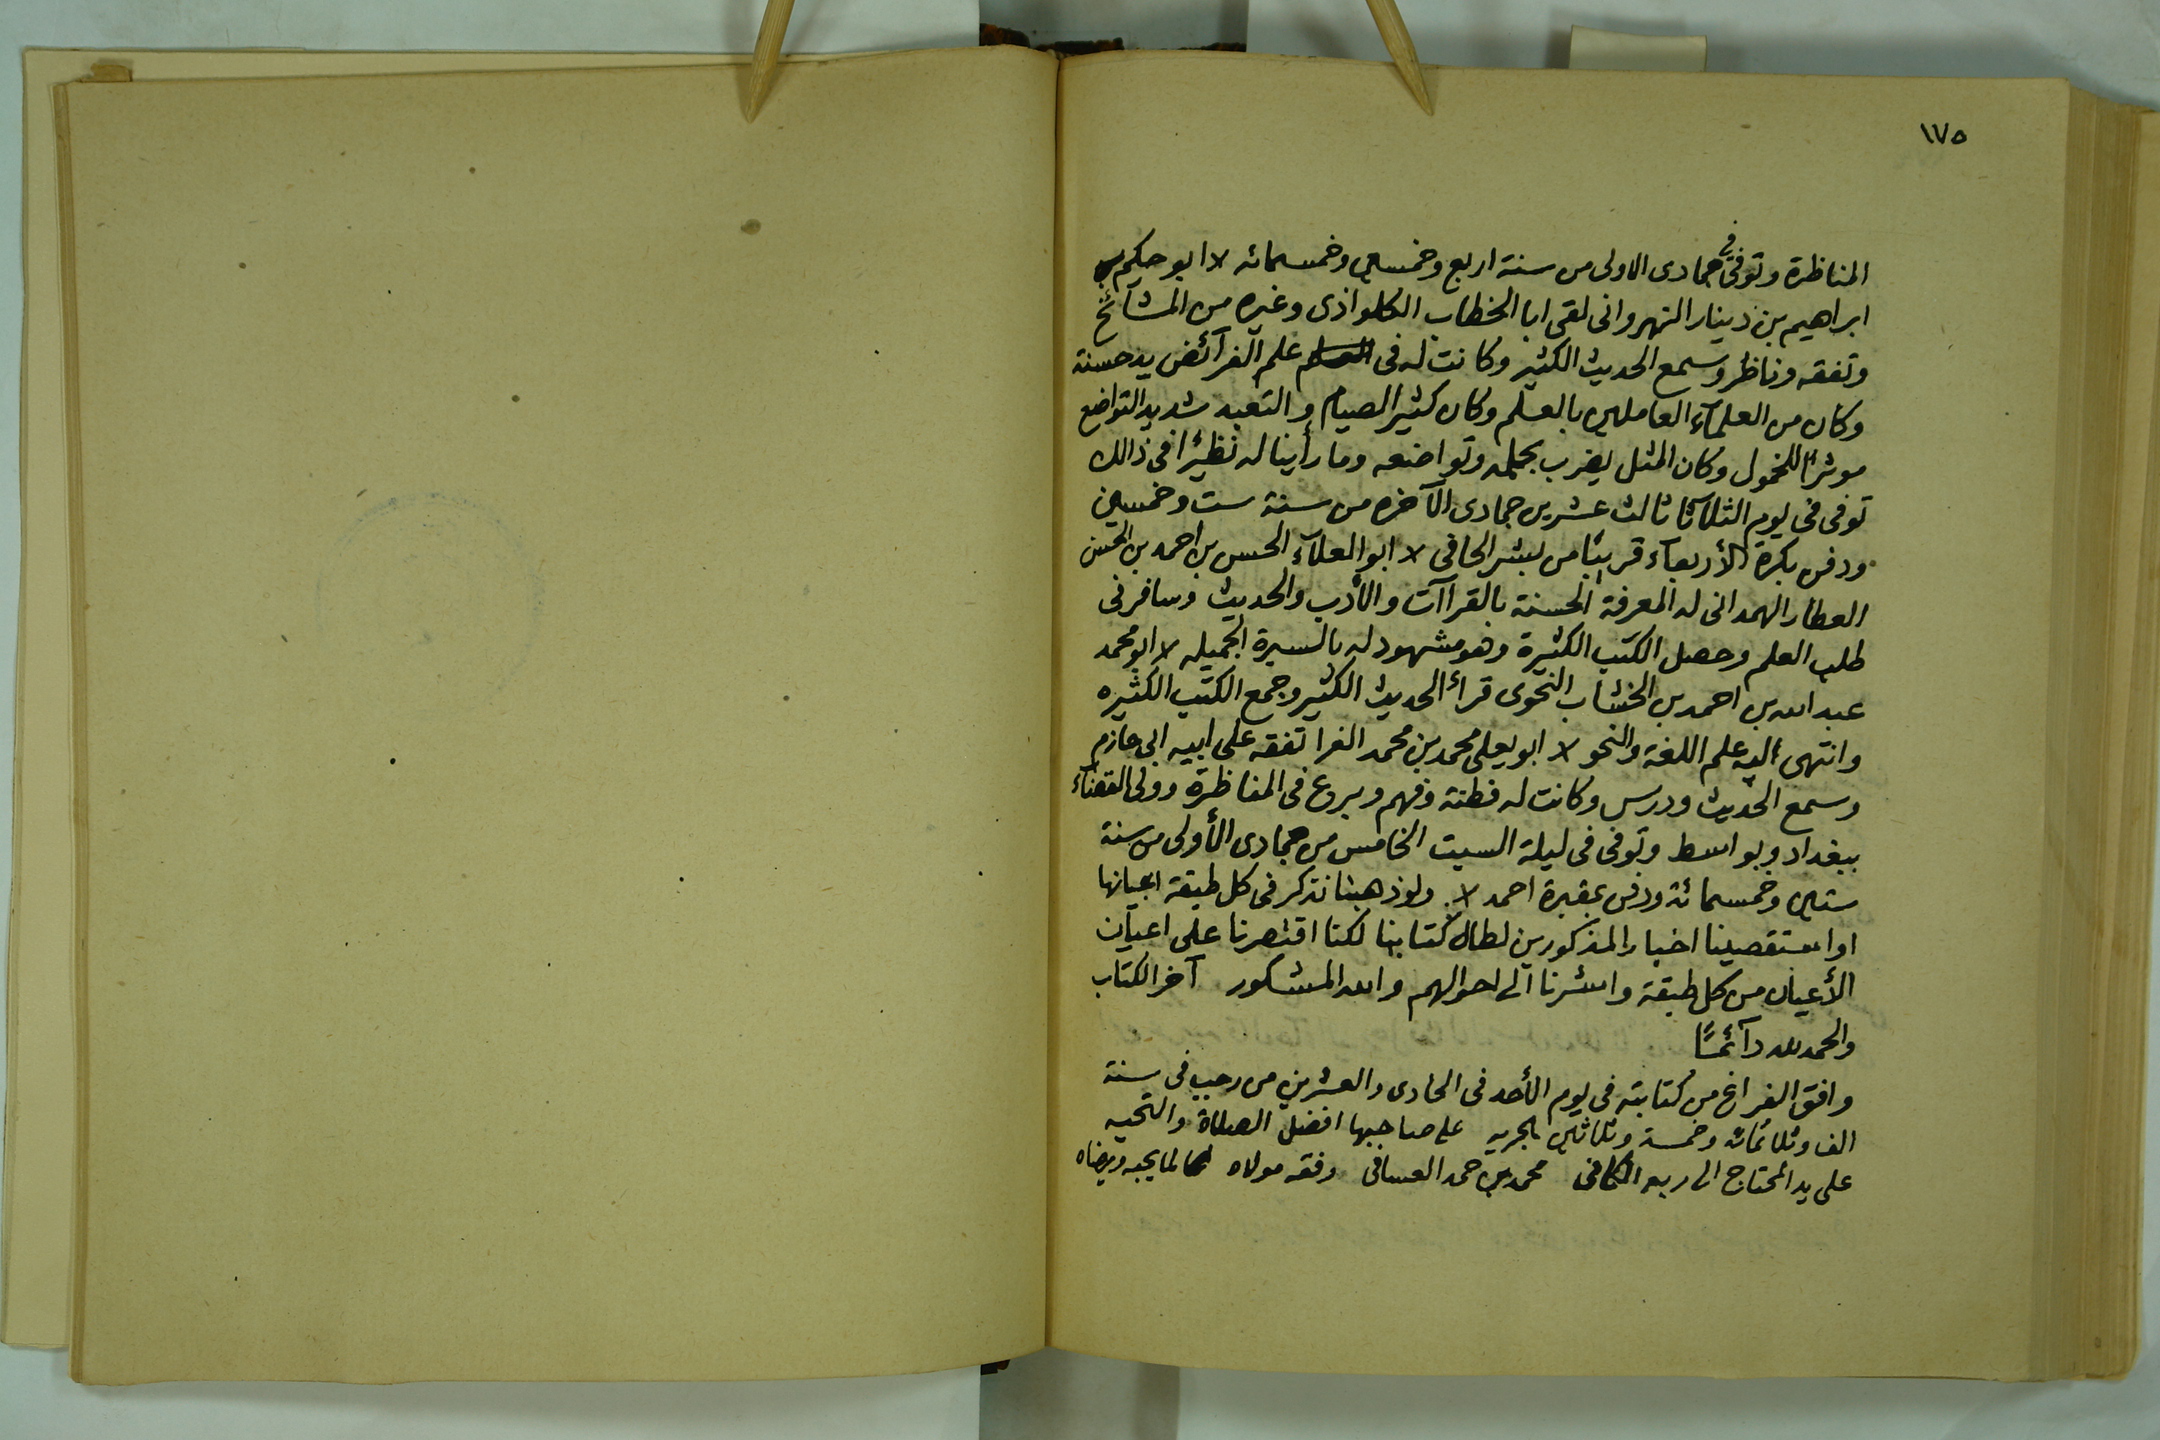 ١٧٥
المناظرة وتوفى في جمادى الاولى من سنة اربع وخمسين وخمسمائه لا ابو حكيم
ابراهيم بن دينار النهروانى لقى ابا الخطاب الكلواذى وغيره من المشائخ
وتفقه وناظر وسمع الحديث الكثير وكانت له فى علم الفرآئض يد حسنة
وكان من العلمآء العاملين بالعلم وكان كثير الصيام والتعبد شديد التواضع
موثرًا للخمول وكان المثل يضرب بحلمه وتواضعه وما رأينا له نظيرًا فى ذالك
توفى فى يوم الثلاثا ثالث عشرين جمادى الآخره من سنة ست وخمسين
ودفن بكرة الأربعآء قريبًا من بشر الحافى لا ابو العلآء الحسن بن احمد بن الحسن
العطار الهمدانى له المعرفة الحسنة بالقراآت والأدب والحديث وسافر فى
طلب العلم وحصل الكتب الكثيرة وهو مشهود له بالسيرة الجميله لا ابو محمد
عبد الله بن احمد بن الخشاب النحوى قراء الحديث الكثير وجمع الكتب الكثيره
وانتهى اليه علم اللغة والنحو لا ابو يعلى محمد بن محمد الفرا تفقه على ابيه ابى حازم
وسمع الحديث ودرس وكانت له فطنة وفهم وبرع فى المناظرة وولى القضآء
ببغداد وبواسط وتوفى فى ليلة السبت الخامس من جمادى الأولى من سنة
ستين وخمسمائة ودفن بمقبرة احمد لا. ولو ذهبنا نذكر فى كل طبقة اعيانها
او استقصينا اخبار المذكورين لطال كتابنا لكنا اقتصرنا على اعيان
الأعيان من كل طبقة واشرنا الى احوالهم والله المشكور آخر الكتاب
والحمد لله دآئمًا
وافق الفراغ من كتابته فى يوم الأحد فى الحادى والعشرين من رجب فى سنة
الف وثلاثمائه وخمسة وثلاثين هجريه على صاحبها افضل الصلاة والتحيه
على يد المحتاج الى ربه الكافى محمد بن حمد العسافى وفقه مولاه لما يحبه ويرضاه